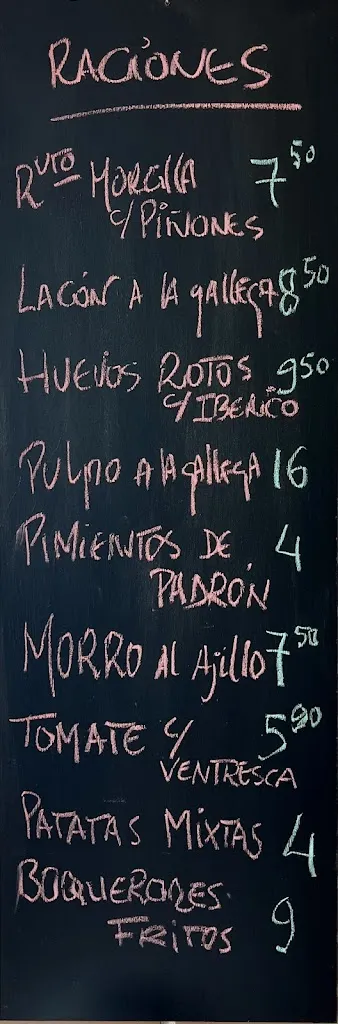 RACIONES
Rvto MORCILLA 7 50
c/ PIÑONES
LACÓN A LA GALLEGA 8 50
HUEVOS ROTOS 9 50
c/ IBERICO
PULPO A LA GALLEGA 16
PIMIENTOS DE 4
PADRÓN
MORRO AL AJILLO 7 50
TOMATE c/ 5 90
VENTRESCA
PATATAS MIXTAS 4
BOQUERONES
FRITOS 9